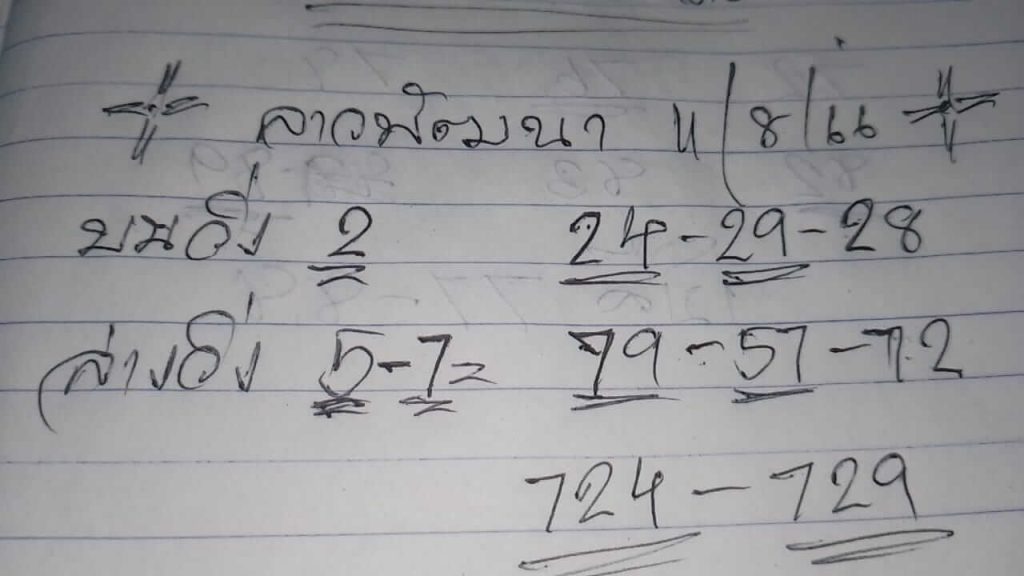 ลาวพัฒนา 4/8/66
บนวิ่ง 2 24-29-28
ล่างวิ่ง 5-7= 79-57-72
724-729